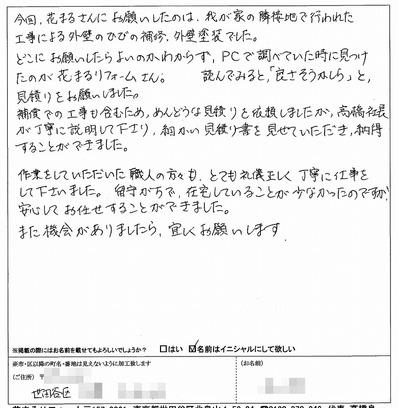 今回、花まるさんにお願いしたのは、我が家の隣接地で行われた
工事による外壁のひびの補修、外壁塗装でした。
どこにお願いしたらよいのかわからず、PCで調べていた時に見つけ
たのが花まるリフォームさん。 読んでみると、「良さそうかしら」と、
見積りをお願いしました。
補償での工事も含むため、めんどうな見積りを依頼しましたが、高橋社長
が丁寧に説明して下さり、細かい見積り書を見せていただき、納得
することができました。
作業をしていただいた職人の方々も、とても礼儀正しく丁寧に仕事を
して下さいました。留守がちで、在宅していることが少なかったのですが
安心してお任せすることができました。
また機会がありましたら、宜しくお願いします。
※掲載の際にはお名前を載せてもよろしいでしょうか? □はい ☑名前はイニシャルにして欲しい
※市・区以降の町名・番地は見えないように加工致します
(ご住所) 〒
(お名前)
世田谷区